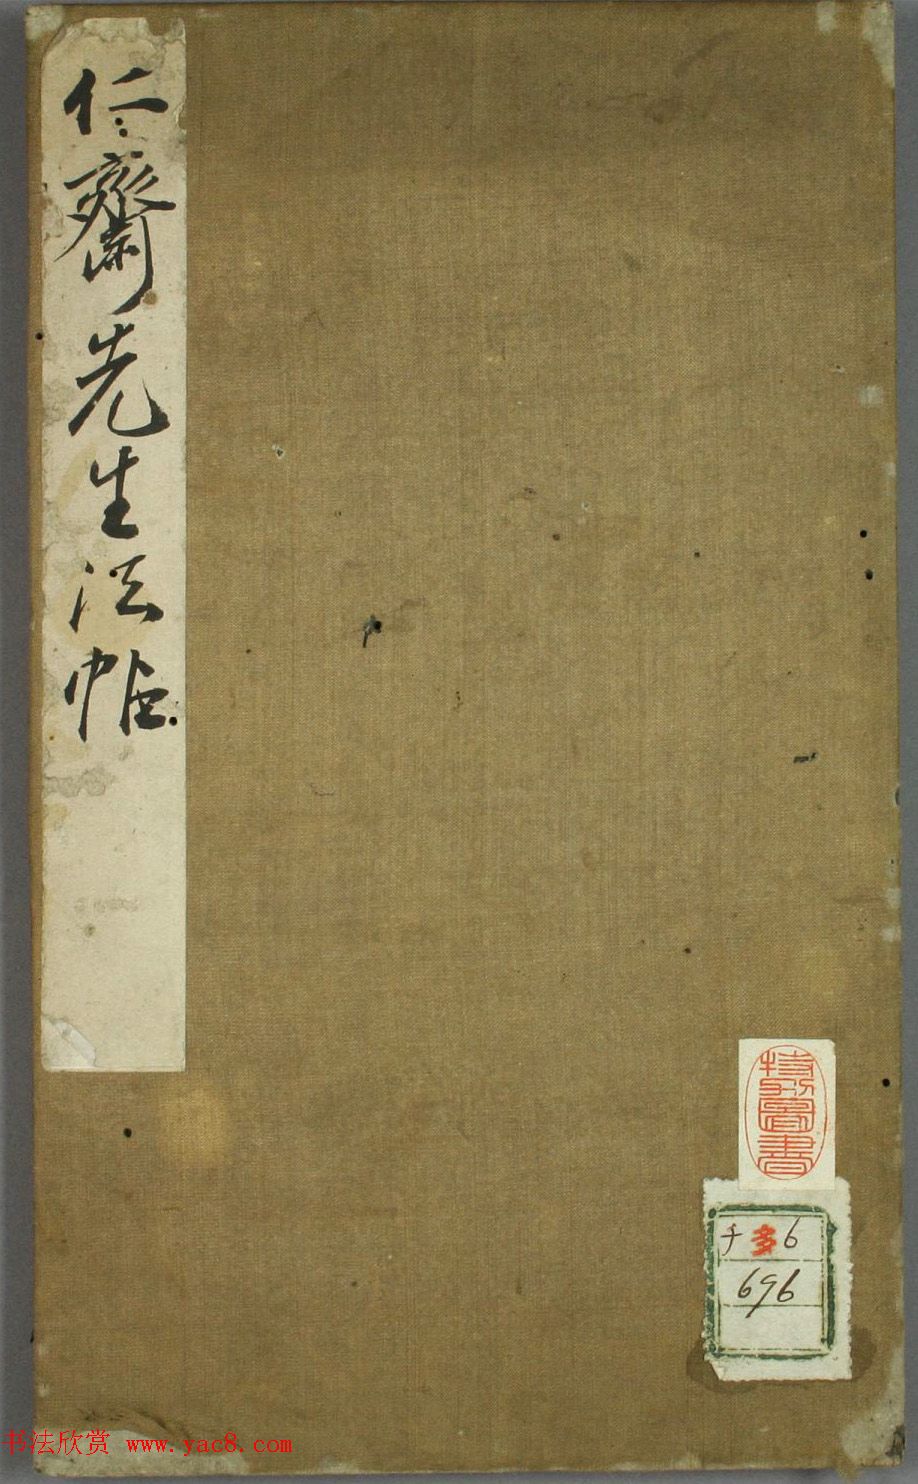 仁齋先生法帖
特別
圖書
チ 多 6
696
书法欣赏 www.yac8.com